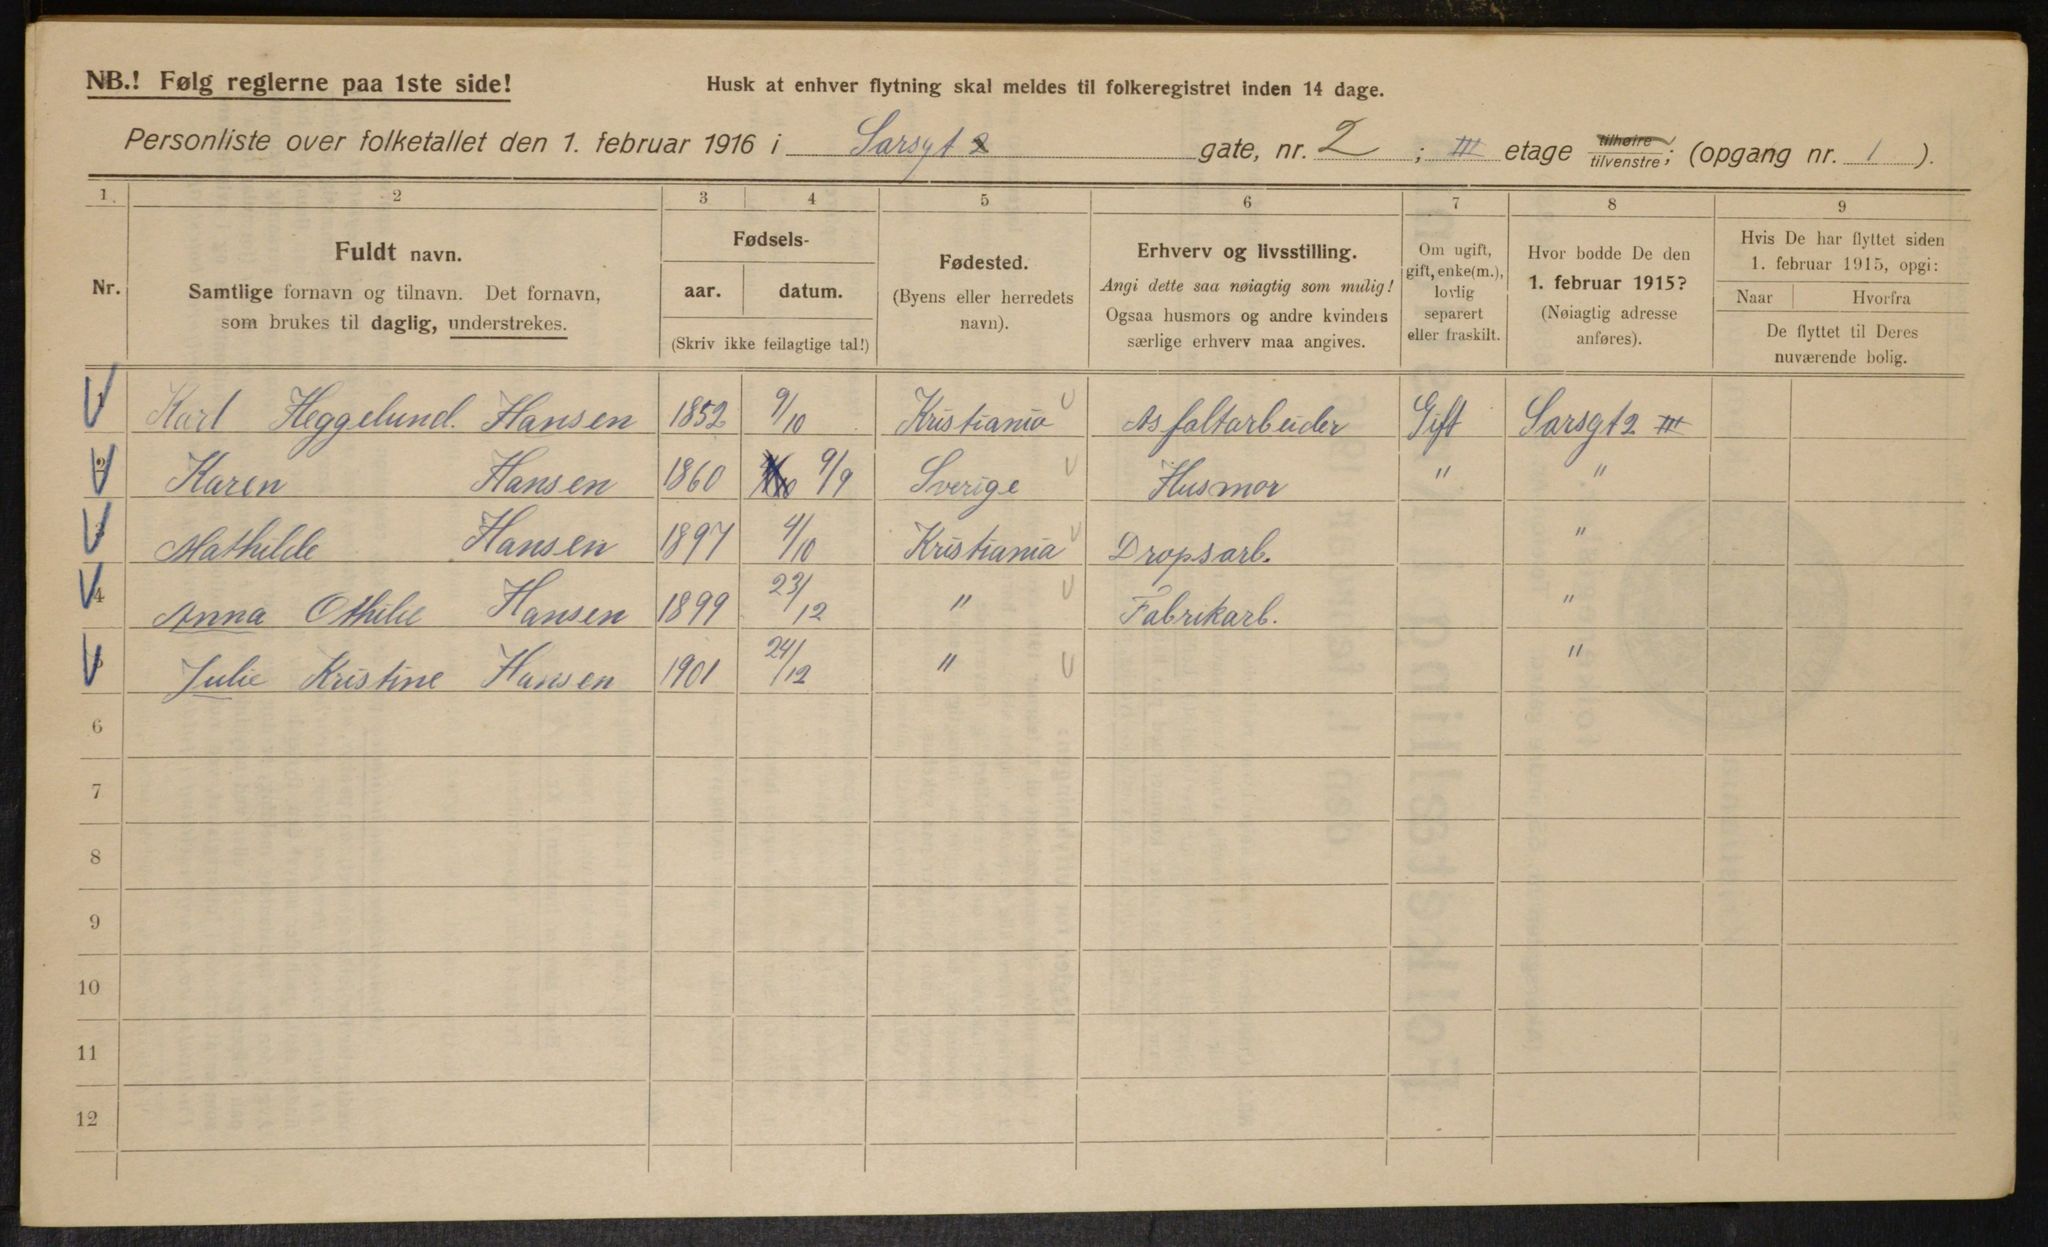 NB.! Følg reglerne paa 1ste side!
Husk at enhver flytning skal meldes til folkeregistret inden 14 dage.
Personliste over folketallet den 1. februar 1916 i Sarsgt 2 gate, nr. 2 ; III etage tilhøire tilvenstre; (opgang nr. 1 ).
1. 2 3 4 5 6 7 8 9
Nr.
Fuldt navn.
Samtlige fornavn og tilnavn. Det fornavn,
som brukes til daglig, understrekes.
Fødsels-
aar. datum.
(Skriv ikke feilagtige tal!)
Fødested.
(Byens eller herredets
navn).
Erhverv og livsstilling.
Angi dette saa nøiagtig som mulig!
Ogsaa husmors og andre kvinders
særlige erhverv maa angives.
Om ugift,
gift, enke(m.),
lovlig
separert
eller fraskilt.
Hvor bodde De den
1. februar 1915?
(Nøiagtig adresse
anføres).
Hvis De har flyttet siden
1. februar 1915, opgi:
Naar Hvorfra
De flyttet til Deres
nuværende bolig.
1 Karl Heggelund. Hansen 1852 9/10 Kristiania Asfaltarbeider Gift Sarsgt 2 III
2 Karen Hansen 1860 9/9 Sverige Husmor " "
3 Mathilde Hansen 1897 4/10 Kristiania Dropsarb. "
4 Anna Othilie Hansen 1899 23/12 " Fabrikarb. "
5 Julie Kristine Hansen 1901 24/12 " "
6
7
8
9
10
11
12